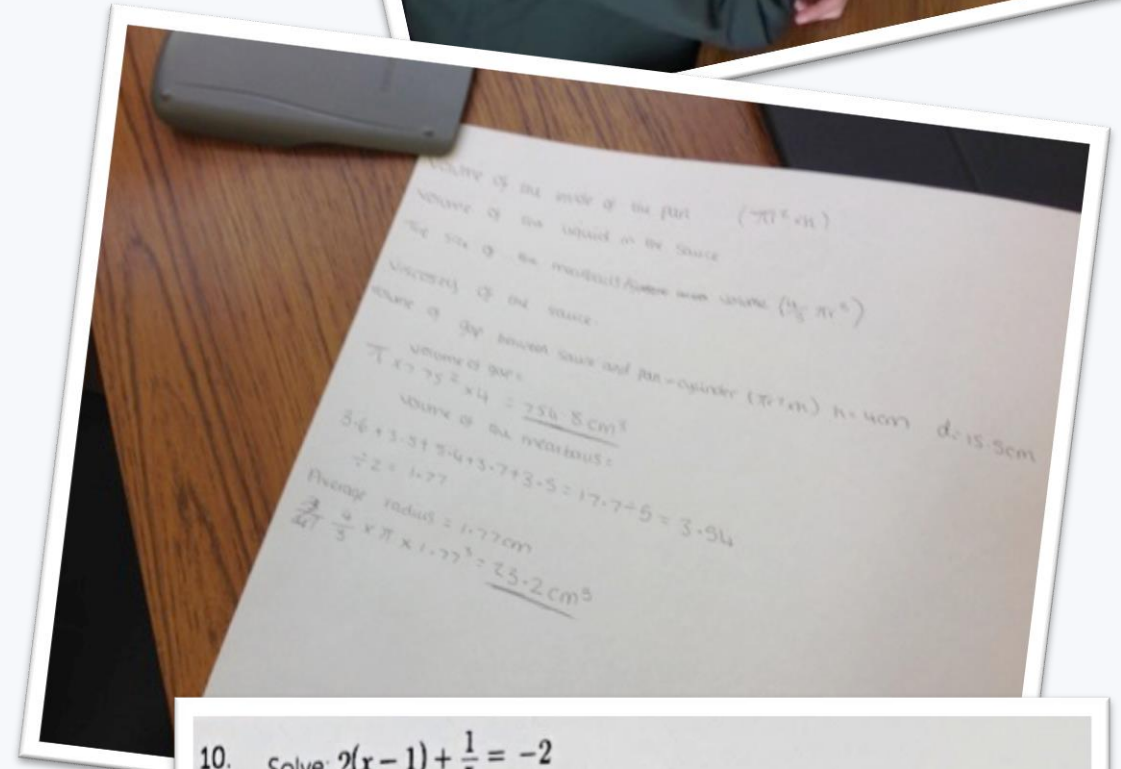 volume of the inside of the pan (πr² × h)
volume of the liquid in the sauce
The size of the meatballs volume (4/3 πr³)
Viscosity of the sauce.
volume of gap between sauce and pan = cylinder (πr² × h) h = 4cm d = 15.5cm
volume of gap =
π × 7.75² × 4 = 754.8cm³
volume of the meatballs =
3.6 + 3.5 + 3.4 + 3.7 + 3.5 = 17.7 ÷ 5 = 3.54
÷ 2 = 1.77
Average radius = 1.77cm
4/3 × π × 1.77³ = 23.2cm³
10. Solve: 2(x − 1) + = −2